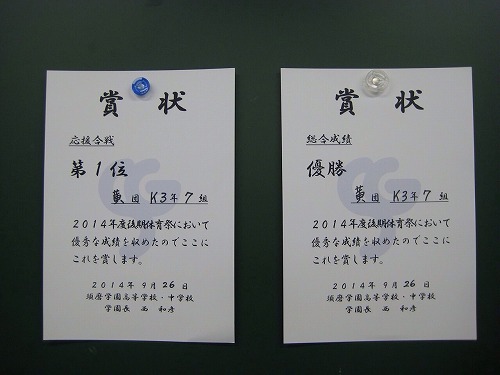 賞状
応援合戦
第1位
黄団 K3年7組
2014年度後期体育祭において
優秀な成績を収めたのでここに
これを賞します。
2014年9月26日
須磨学園高等学校・中学校
学園長 西 和彦
賞状
総合成績
優勝
黄団 K3年7組
2014年度後期体育祭において
優秀な成績を収めたのでここに
これを賞します。
2014年9月26日
須磨学園高等学校・中学校
学園長 西 和彦